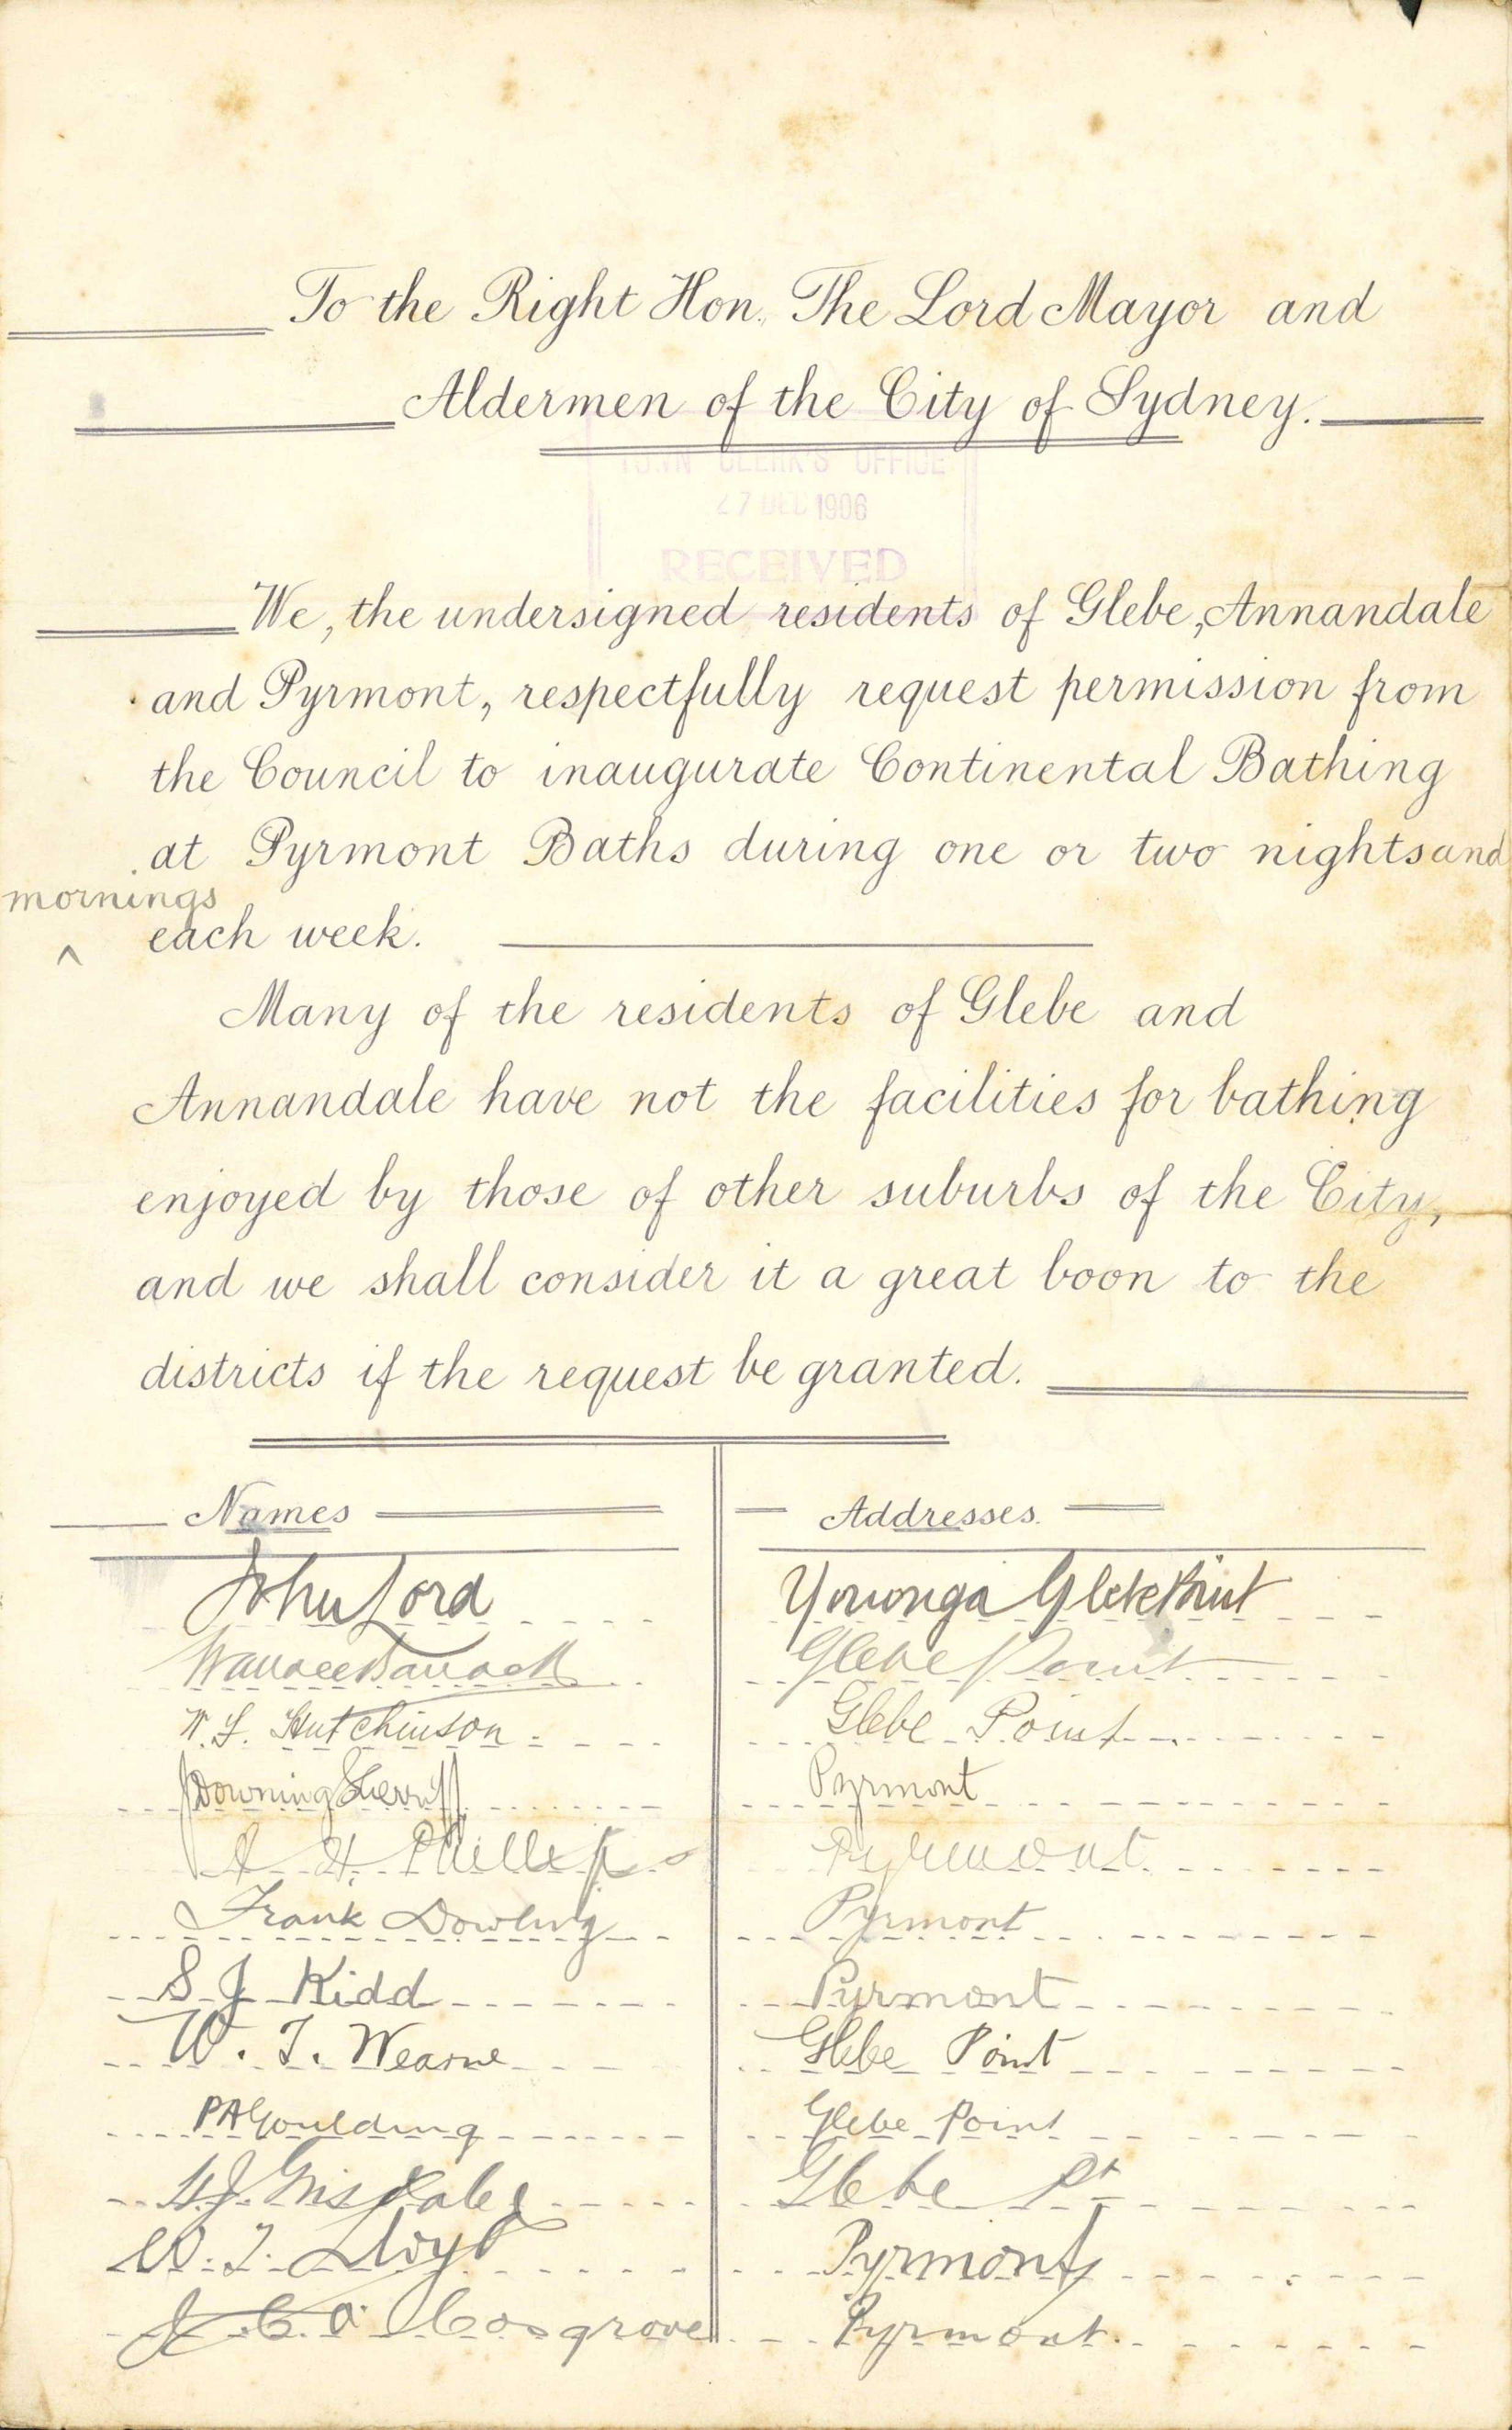 To the Right Hon. The Lord Mayor and
Aldermen of the City of Sydney.
TOWN CLERK'S OFFICE
27 DEC 1906
RECEIVED
We, the undersigned residents of Glebe, Annandale
and Pyrmont, respectfully request permission from
the Council to inaugurate Continental Bathing
at Pyrmont Baths during one or two nights and
mornings
^ each week.
Many of the residents of Glebe and
Annandale have not the facilities for bathing
enjoyed by those of other suburbs of the City,
and we shall consider it a great boon to the
districts if the request be granted.
Names Addresses.
John Lord Glebe Point
Glebe Point
Hutchinson Glebe Point
Downing Sherriff Pyrmont
A H. Phillips Pyrmont
Frank Dowling Pyrmont
S J Kidd Pyrmont
W. T. Wearne Glebe Point
PA Goulding Glebe Point
Glebe Pt
W. J. Lloyd Pyrmont
Cosgrove Pyrmont